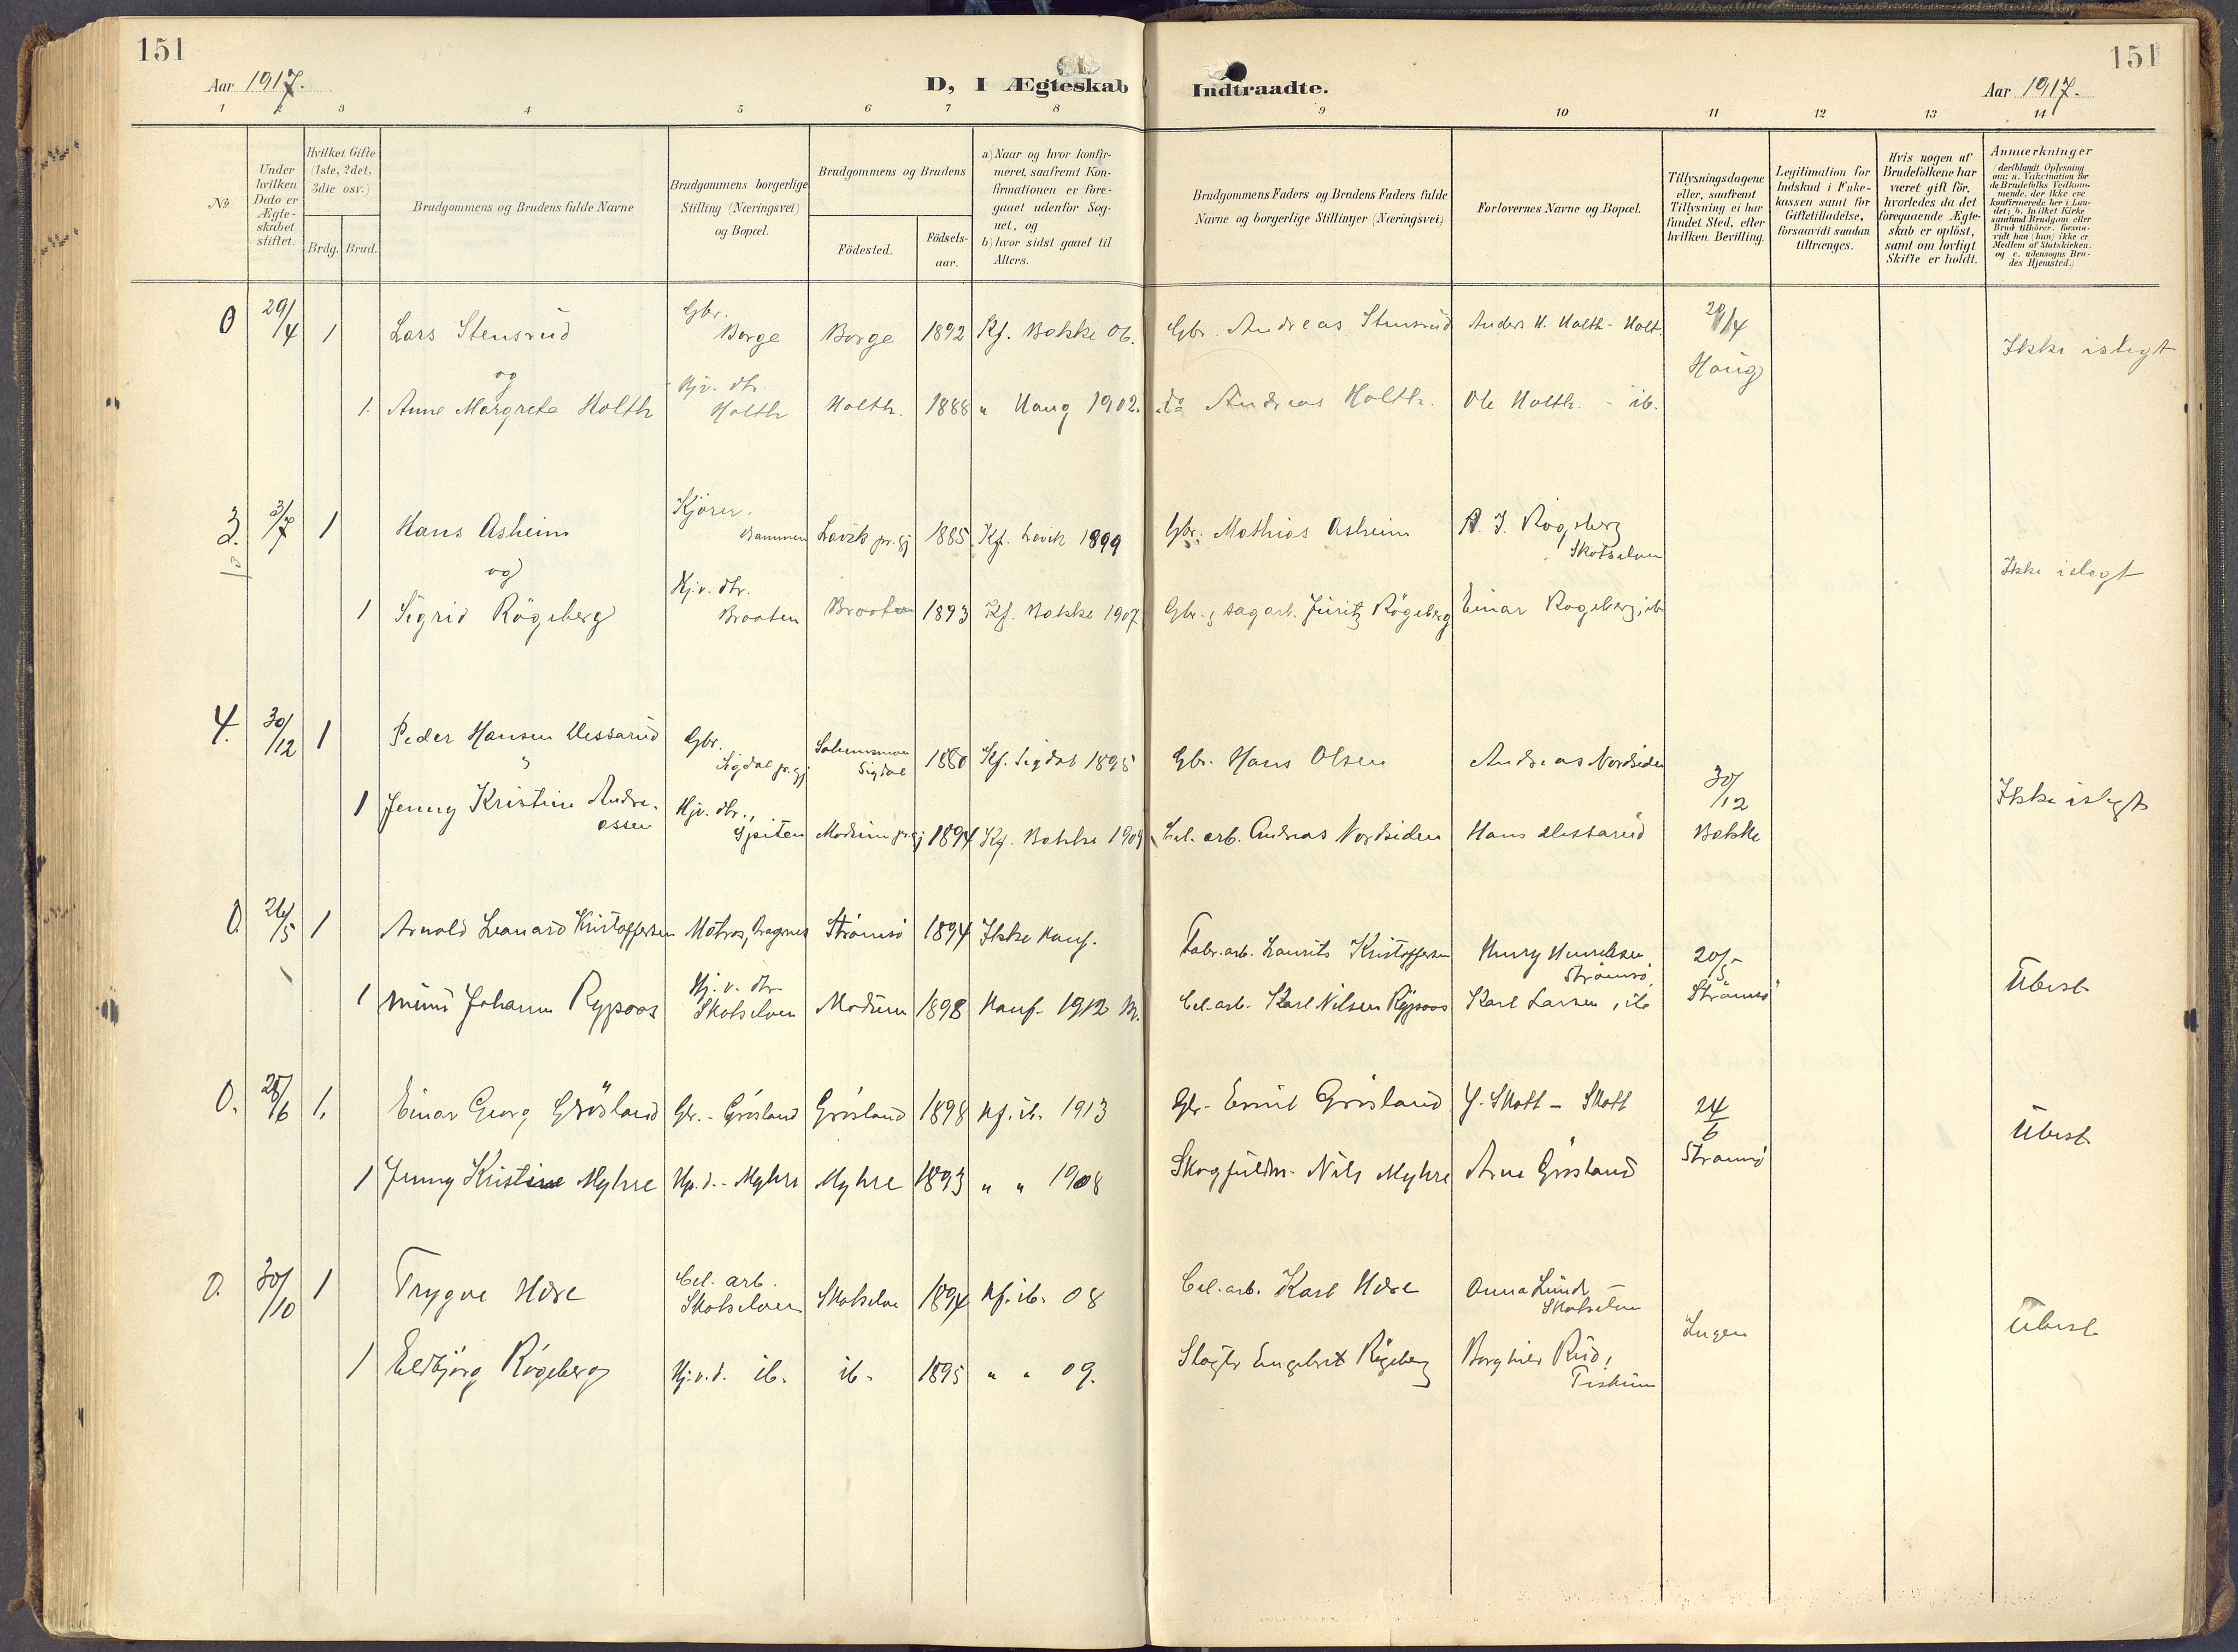 151
151
Aar 1917.
D, I Ægteskab Indtraadte.
Aar 1917.
1 2 3 4 5 6 7 8 9 10 11 12 13 14
№
Under hvilken Dato er Ægteskabet stiftet.
Hvilket Gifte (1ste, 2det, 3die osv.)
Brdg. Brud.
Brudgommens og Brudens fulde Navne
Brudgommens borgerlige Stilling (Næringsvei) og Bopæl.
Brudgommens og Brudens
Födested.
Födselsaar.
a) Naar og hvor konfirmeret, saafremt Konfirmationen er foregaaet udenfor Sognet, og
b) hvor sidst gaaet til Alters.
Brudgommens Faders og Brudens Faders fulde Navne og borgerlige Stillinger (Næringsvei)
Forlovernes Navne og Bopæl.
Tillysningsdagene eller, saafremt Tillysning ei har fundet Sted, efter hvilken Bevilling.
Legitimation for Indskud i Enkekassen samt for Giftetilladelse, forsaavidt saadan tiltrænges.
Hvis nogen af Brudefolkene har været gift för, hvorledes da det foregaaende Ægteskab er oplöst, samt om lovligt Skifte er holdt.
Anmærkninger (deriblandt Oplysning om: a. Vakcination for de Brudefolks Vedkommende, der ikke ere konfirmerede her i Landet; b. hvilket Kirkesamfund Brudgom eller Brud tilhörer, forsaavidt han (hun) ikke er Medlem af Statskirken, og c. udensogns Brudes Hjemsted.)
0 29/4 1 Lars Stensrud Gbr. Borge Borge 1892 Kf. Bakke 06. Gbr. Andreas Stensrud Anders H. Holth - Holt 29/4
og Haug Ikke islegt
1. Anne Margrete Holth Hjv. dtr. Holth Holth. 1888 " Haug 1902. do Andreas Holth. Ole Holth. - ib.
3. 3/7 1 Hans Asheim Kjörer. Drammen Lavik pr.gj 1885 Kf. Lavik 1899 Gbr. Mathias Asheim A. J. Rögeberg Skotselven
og Ikke islegt
1 Sigrid Rögeberg Hj.v. dtr. Braaten Braaten 1893 Kf. Bakke 1907 Gbr. & sagarb. Juritz Rögeberg Einar Rogeberg, ib
4. 30/12 1 Peder Hansen Gbr. Sigdal pr.gj Sigdal 1880 Kf. Sigdal 1895 Gbr. Hans Olsen Andreas Nordsiden
30/12 Bakke Ikke islegt
1 Jenny Kristine Andreassen Hjv. dtr., Modum pr.gj 1894 Kf. Bakke 1909 Cel. arb. Andreas Nordsiden Hans
0. 26/5 1 Arnold Leonard Kristoffersen Matros, Bragernes Strömsö 1894 Ikke konf. Fabr.arb. Laurits Kristoffersen Henry Henriksen, Strömsö, 20/5 Strömsö
1 Mimi Johanne Rypaas Hj.v. dtr. Skotselven Modum 1898 Konf. 1912 M. Cel. arb. Karl Nilsen Rypaas Karl Larsen, ib Ubesl.
0. 28/6 1. Einar Georg Grösland Gbr. - Grösland Grösland 1898 Kf. ib. 1913 Gbr. Emil Grösland Y. Skott - Skott 24/6 Strömsö
1 Jenny Kristine Myhre Hjv.d. - Myhre Myhre 1893 " " 1908 Skogfuldm. Nils Myhre Arne Grösland Ubesl.
0. 30/10 1 Trygve Hære Cel. arb. Skotselven Skotselv 1894 Kf. ib. 08 Cel. arb. Karl Hære Anna Lund - Skotselven
Ingen Ubesl.
1 Eldbjörg Rögeberg Hj.v.d. ib. ib. 1895 " " 09. Slagtr Engebret Rögeberg Borghild Rud,